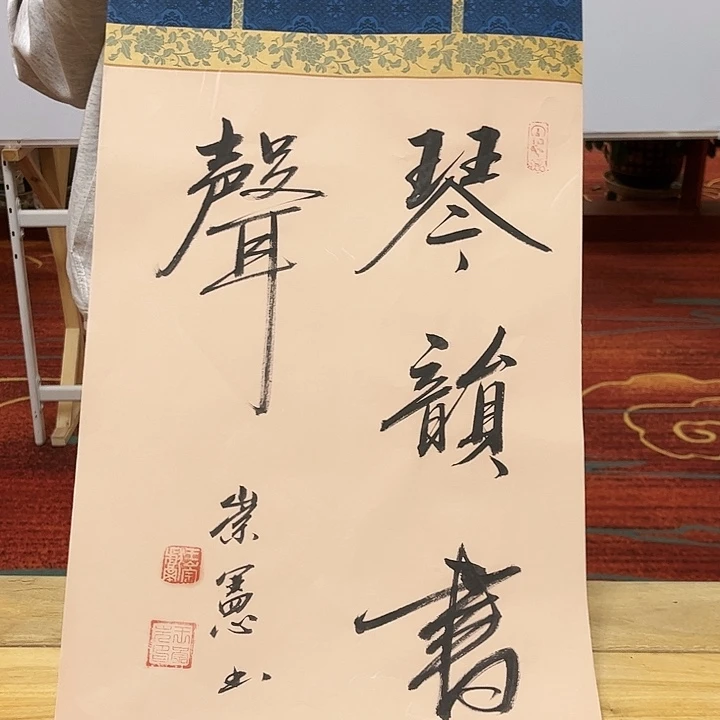 琴韻書
聲
崇憲书